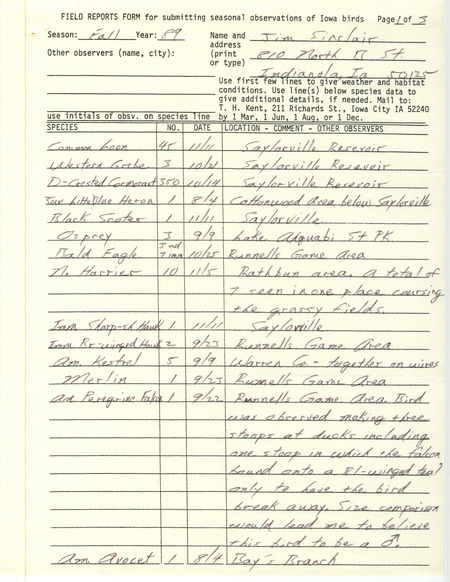 FIELD REPORTS FORM for submitting seasonal observations of Iowa birds Page 1 of 3
Season: Fall Year: 89 Name and Jim Sinclair
address
Other observers (name, city): (print 810 North B St.
or type)
Indianola, Ia 50125
Use first few lines to give weather and habitat
conditions. Use line(s) below species data to
give additional details, if needed. Mail to:
T. H. Kent, 211 Richards St., Iowa City IA 52240
use initials of obsv. on species line by 1 Mar, 1 Jun, 1 Aug, or 1 Dec.
SPECIES NO. DATE LOCATION - COMMENT - OTHER OBSERVERS
Common Loon 45 11/11 Saylorville Resevoir
Western Grebe 3 10/21 Saylorville Resevoir
D-Crested Cormorant 350 10/14 Saylorville Resevoir
Juv. Little Blue Heron 1 8/4 Cottonwood Area below Saylorville
Black Scoter 1 11/11 Saylorville
Osprey 3 9/9 Lake Ahquabi St PK.
Bald Eagle 3 ad 7 imm 10/25 Runnells Game Area
N. Harrier 10 11/5 Rathbun area. A total of
7 seen in one place coursing
the grassy fields.
Imm Sharp-sh Hawk 1 11/11 Saylorville
Imm. Br-winged Hawk 2 9/23 Runnells Game Area
Am. Kestrel 5 9/9 Warren Co. - together on wires
Merlin 1 9/23 Runnells Game Area
Ad Peregrine Falcon 1 9/22 Runnells Game Area. Bird
was observed making three
stoops at ducks including
one stoop in which the falcon
bound onto a Bl-winged teal
only to have the bird
break away. Size comparison
would lead me to believe
this bird to be a ♂.
Am. Avocet 1 8/4 Bay's Branch